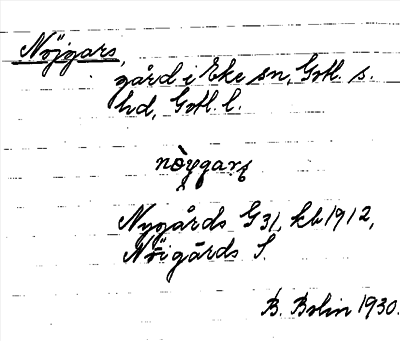 Nöjgars,
gård i Eke sn, Gotl. s.
hd, Gotl. l.
Nygårds G31, kb 1912,
Nöigårds S.
B. Bolin 1930.